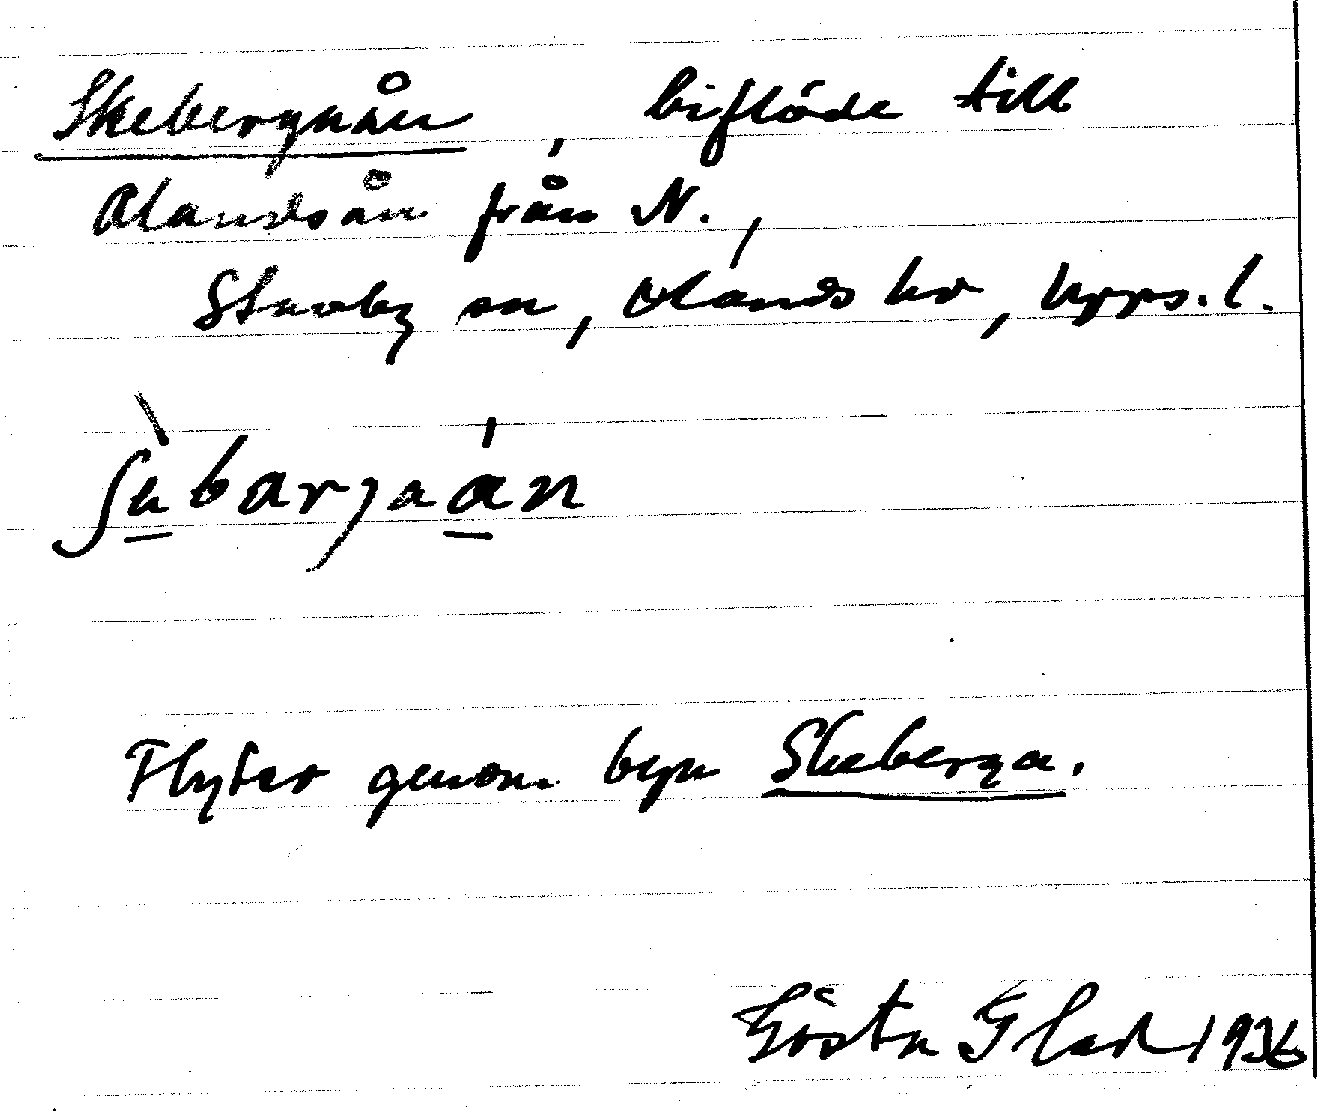 Skebergaån, biflöde till
Olandsån från N.,
Stavby sn, Olands hd, Upps. l.
Flyter genom byn Skeberga.
Gösta Glad 1936